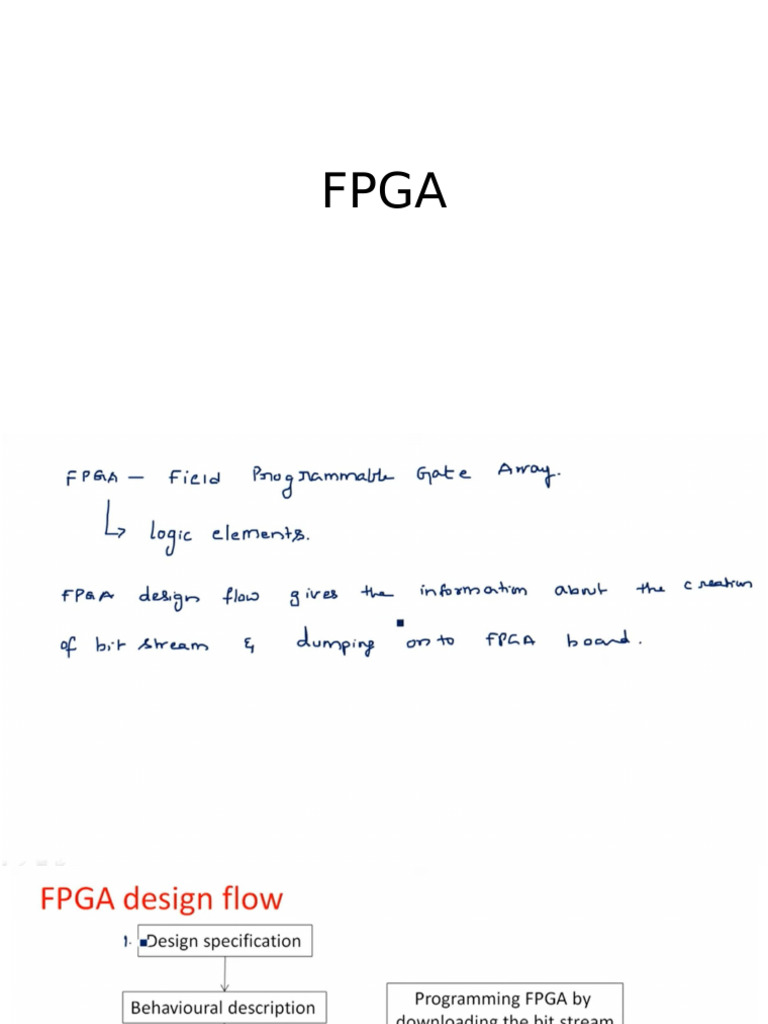 FPGA
FPGA — Field Programmable Gate Array.
logic elements.
FPGA design flow gives the information about the creation
of bit stream & dumping on to FPGA board.
FPGA design flow
1. Design specification
Behavioural description
Programming FPGA by
downloading the bit stream